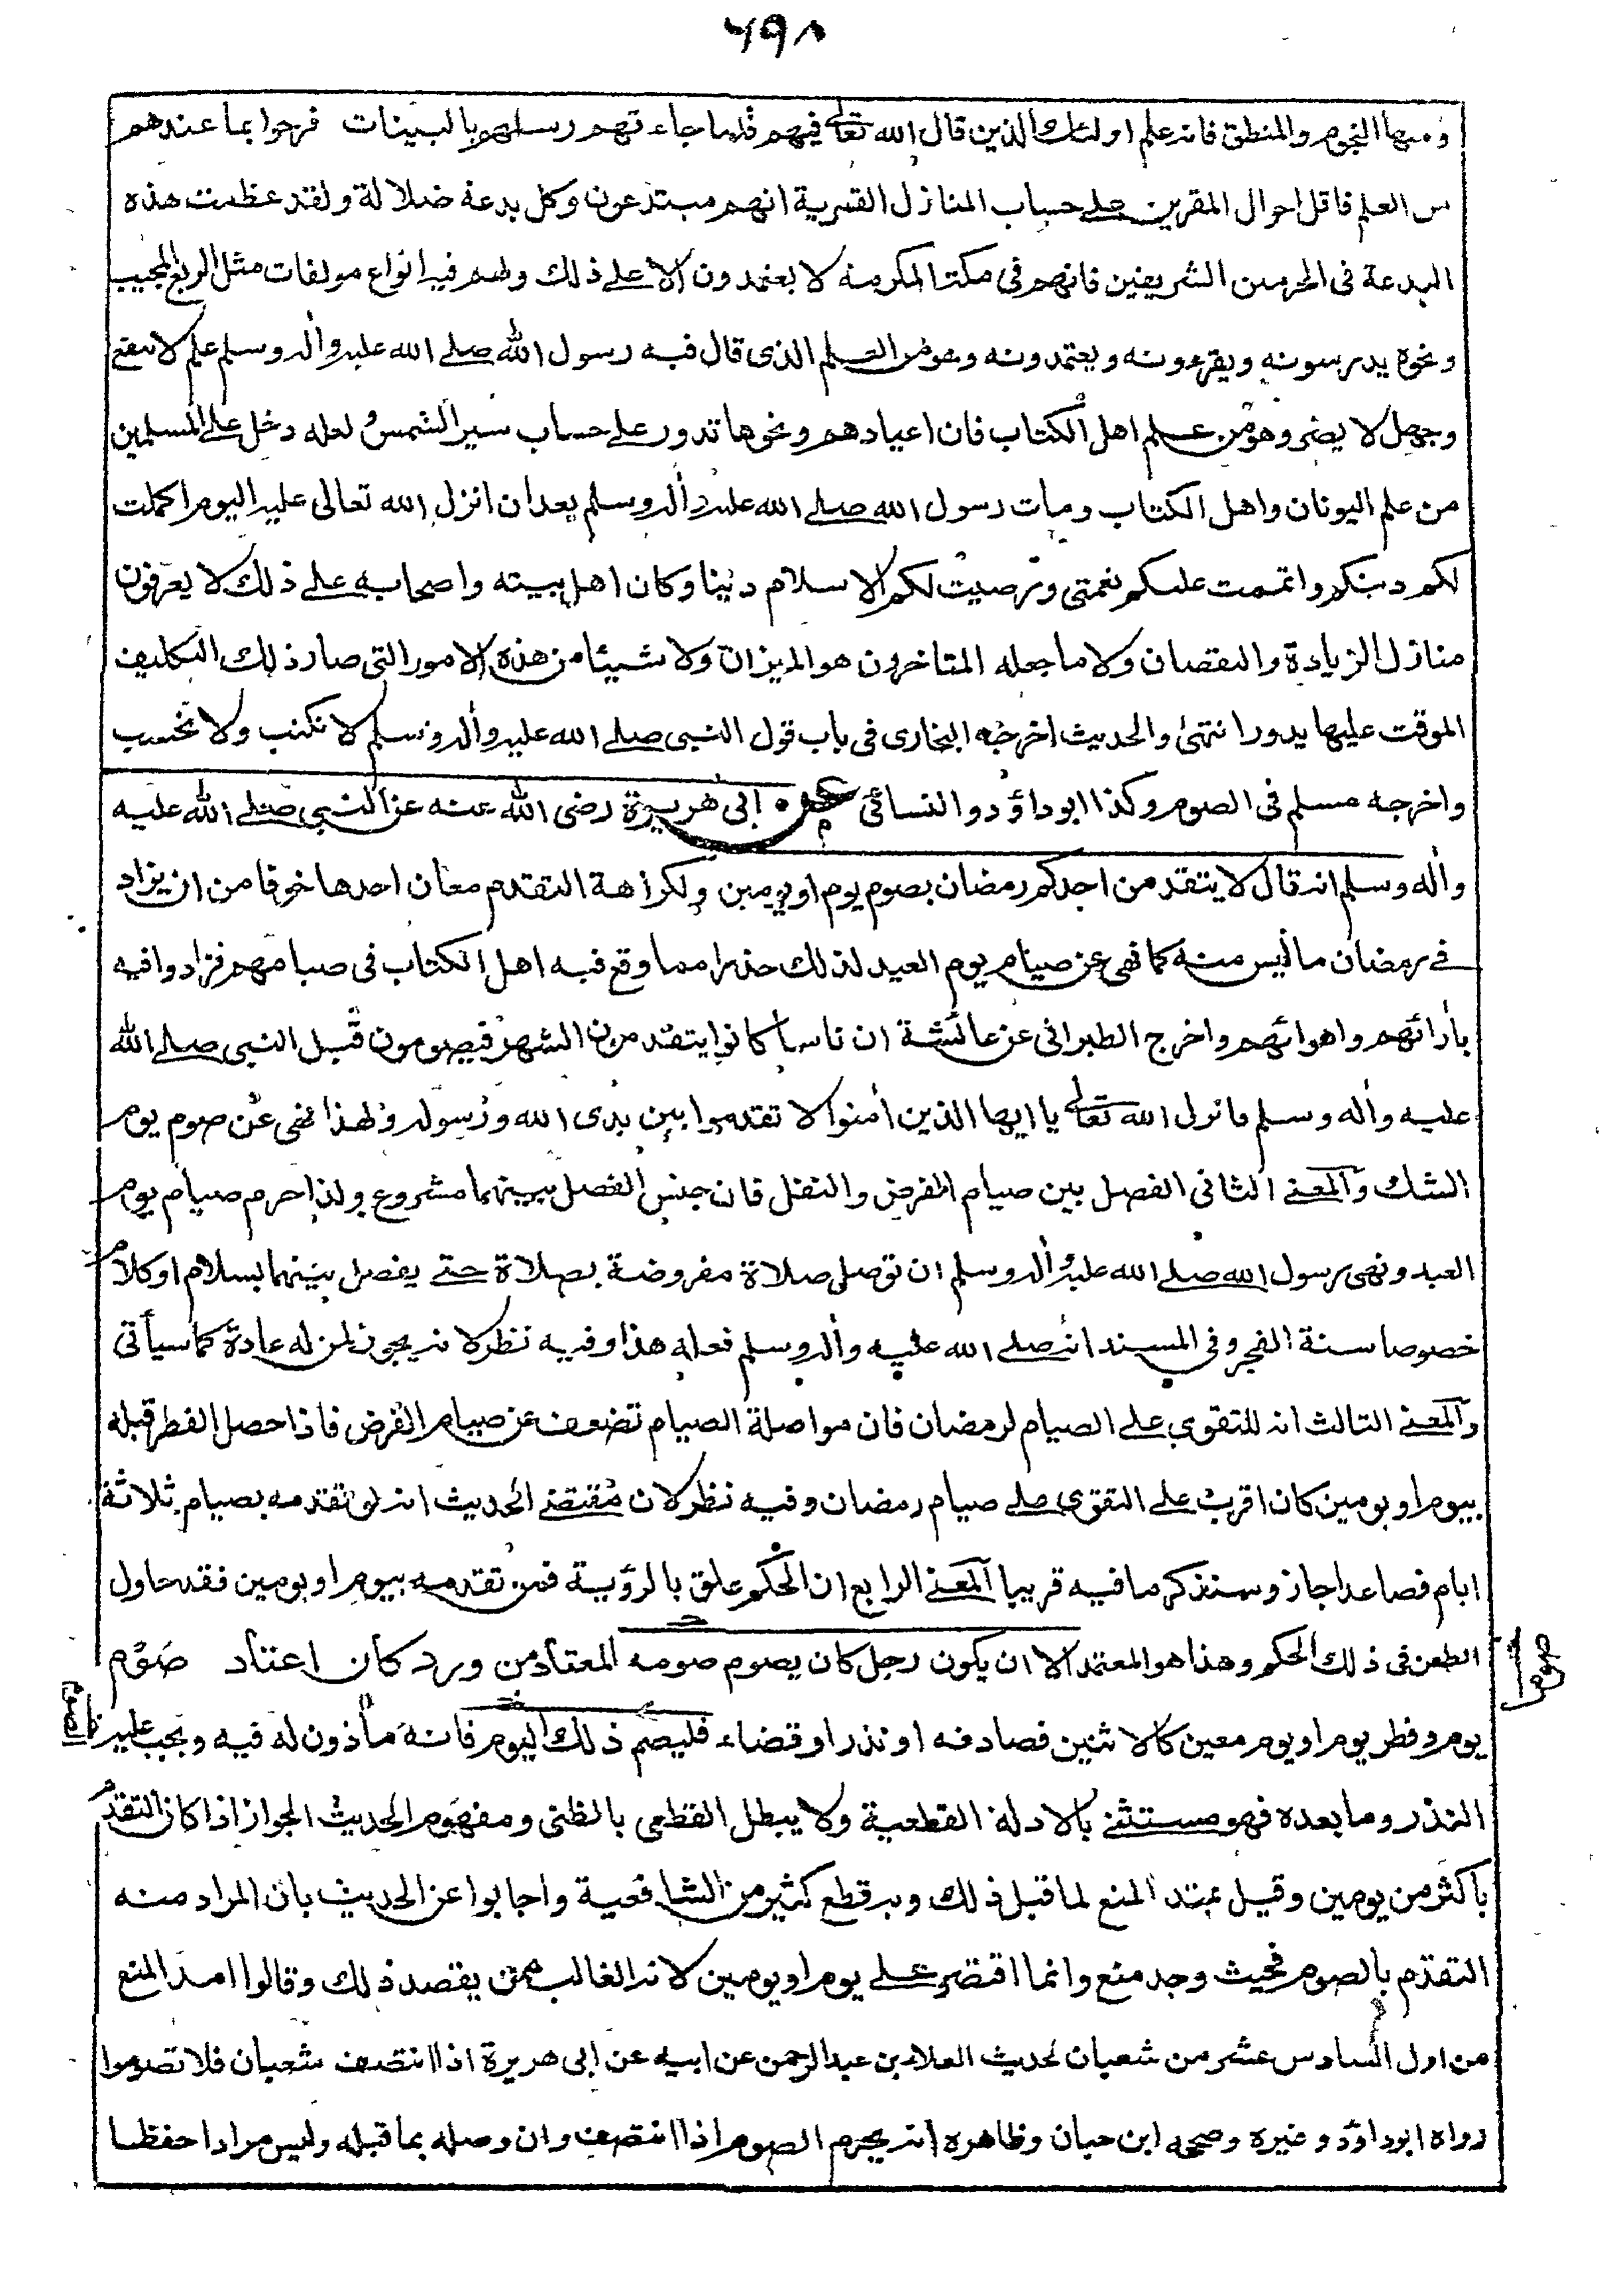 ٦٩٨
ومنها النجوم والمنطق فانه علم اولئك الذين قال الله تعالى فيهم فلما جاءتهم رسلهم بالبينات فرحوا بما عندهم
من العلم فاقل احوال المقرين على حساب المنازل القمرية انهم مبتدعون وكل بدعة ضلالة ولقد عظمت هذه
البدعة فى الحرمين الشريفين فانهم فى مكة المكرمة لا يعتمدون الا على ذلك ولهم فيه انواع مولفات مثل الربع المجيب
ونحوه يدرسونه ويقرءونه ويعتمدونه وهو من العلم الذى قال فيه رسول الله صلى الله عليه وآله وسلم علم لا ينفع
وجهل لا يضر وهو من علم اهل الكتاب فان اعيادهم ونحوها تدور على حساب سير الشمس ولعله دخل على المسلمين
من علم اليونان واهل الكتاب ومات رسول الله صلى الله عليه وآله وسلم بعد ان انزل الله تعالى عليه اليوم اكملت
لكم دينكم واتممت عليكم نعمتى ورضيت لكم الاسلام دينا وكان اهل بيته واصحابه على ذلك لا يعرفون
منازل الزيادة والنقصان ولا ما جعله المتاخرون هو الميزان ولا شيئا من هذه الامور التى صار ذلك التكليف
الموقت عليها يدور انتهى والحديث اخرجه البخارى فى باب قول النبى صلى الله عليه وآله وسلم لا نكتب ولا نحسب
واخرجه مسلم فى الصوم وكذا ابو داؤد والنسائى عن ابى هريرة رضى الله عنه عن النبى صلى الله عليه
وآله وسلم انه قال لا يتقد من احدكم رمضان بصوم يوم او يومين ولكراهة التقدم معان احدها خوفا من ان يزاد
فى رمضان ما ليس منه كما نهى عن صيام يوم العيد لذلك حذرا مما وقع فيه اهل الكتاب فى صيامهم فزادوا فيه
بآرائهم واهوائهم واخرج الطبرانى عن عائشة ان ناسا كانوا يتقدمون الشهر فيصومون قبل النبى صلى الله
عليه وآله وسلم فانزل الله تعالى يا ايها الذين آمنوا لا تقدموا بين يدى الله ورسوله ولهذا نهى عن صوم يوم
الشك والمعنى الثانى الفصل بين صيام الفرض والنفل فان جنس الفصل بينهما مشروع ولذا حرم صيام يوم
العيد ونهى رسول الله صلى الله عليه وآله وسلم ان توصل صلاة مفروضة بصلاة حتى يفصل بينهما بسلام او كلام
خصوصا سنة الفجر وفى المسند انه صلى الله عليه وآله وسلم فعله هذا وفيه نظر لانه يجوز لمن له عادة كما سيأتى
والمعنى الثالث انه للتقوى على الصيام لرمضان فان مواصلة الصيام تضعف عن صيام الفرض فاذا حصل الفطر قبله
بيوم او يومين كان اقرب على التقوى على صيام رمضان وفيه نظر لان مقتضى الحديث انه لو تقدمه بصيام ثلاثة
ايام فصاعدا جاز وسنذكر ما فيه قريبا المعنى الرابع ان الحكم علق بالرؤية فمن تقدمه بيوم او يومين فقد حاول
الطعن فى ذلك الحكم وهذا هو المعتمد الا ان يكون رجل كان يصوم صومه المعتاد من ورد كأن اعتاد صوم
يوم وفطر يوم او يوم معين كالاثنين فصادفه او نذر او قضاء فليصم ذلك اليوم فانه مأذون له فيه ويجب عليه
النذر وما بعده فهو مستثنى بالادلة القطعية ولا يبطل القطعى بالظنى ومفهوم الحديث الجواز اذا كان التقدم
باكثر من يومين وقيل يمتد المنع لما قبل ذلك وبه قطع كثير من الشافعية واجابوا عن الحديث بان المراد منه
التقدم بالصوم فحيث وجد منع وانما اقتصر على يوم او يومين لانه الغالب ممن يقصد ذلك وقالوا امد المنع
من اول السادس عشر من شعبان لحديث العلاء بن عبد الرحمن عن ابيه عن ابى هريرة اذا انتصف شعبان فلا تصوموا
رواه ابو داؤد وغيره وصححه ابن حبان وظاهره انه يحرم الصوم اذا انتصف وان وصله بما قبله وليس مرادا حفظا